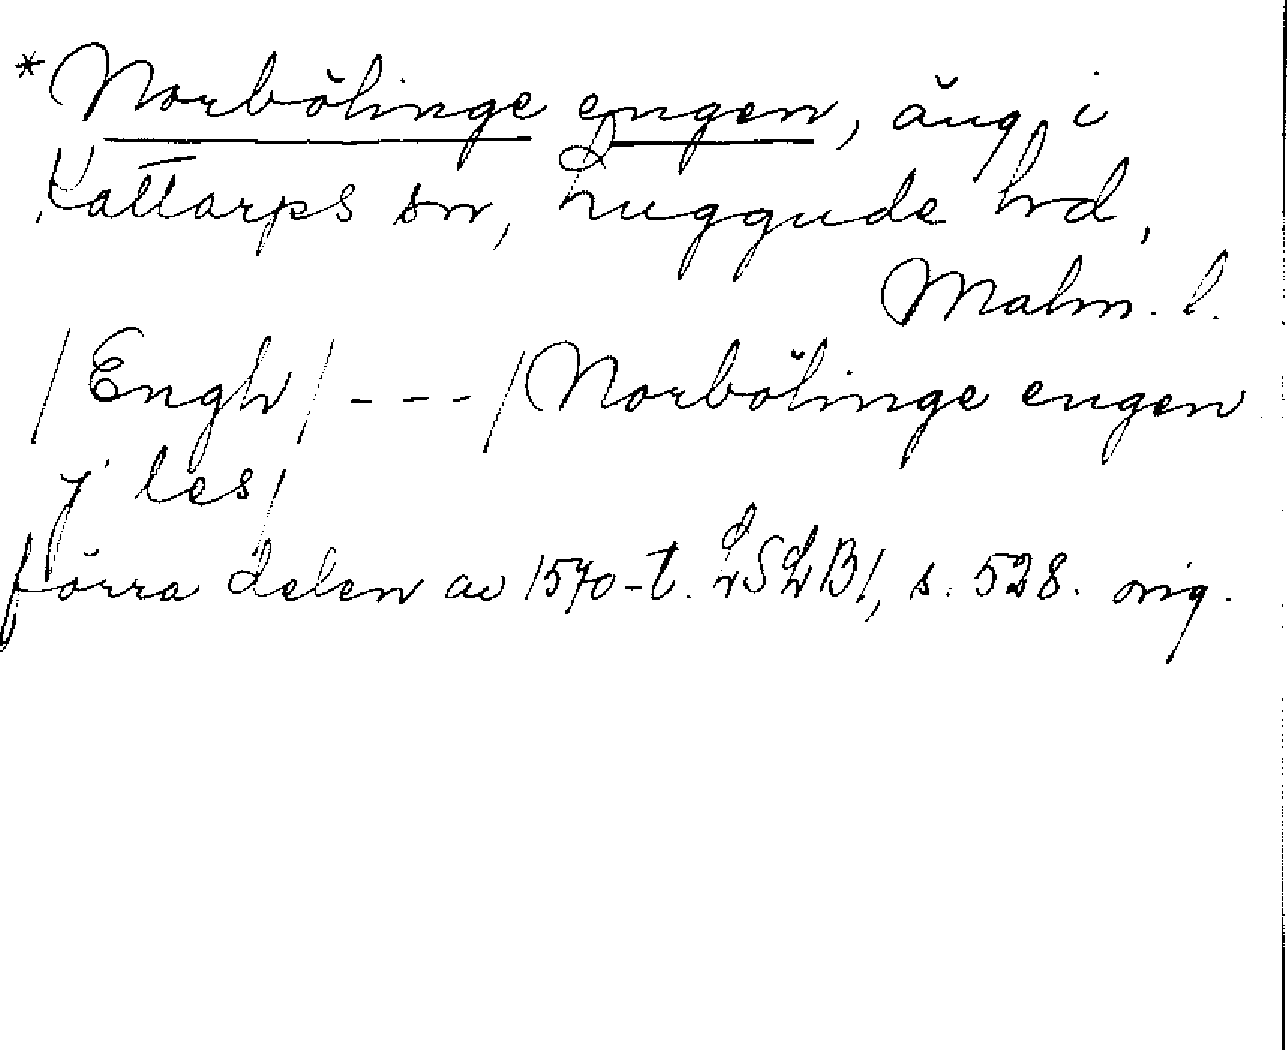 *Norbölinge engen, äng i
Kattarps sn, Luggude hd,
Malm. l.
/Engh/ - - - /Norbölinge engen
j les/
förra delen av 1570-t. LSLB1, s. 528. orig.